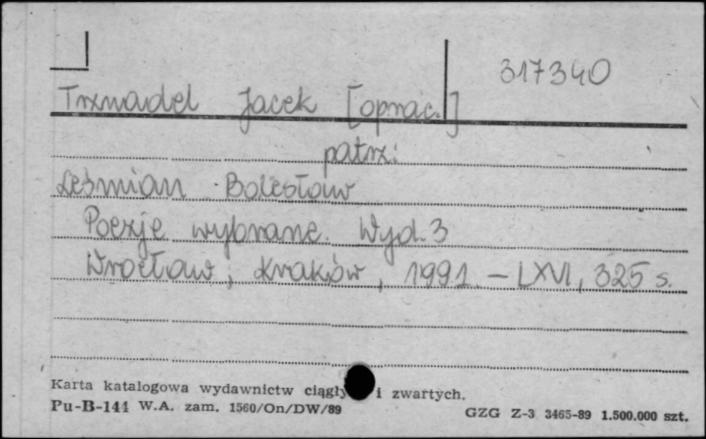 317340
Trznadel Jacek [oprac.]
patrz:
Leśmian Bolesław
Poezje wybrane. Wyd. 3
Wrocław; Kraków, 1991. – LXVI, 325 s.
Karta katalogowa wydawnictw i zwartych.
Pu-B-144 W.A. zam. 1560/On/DW/89
GZG Z-3 3465-89 1.500.000 szt.